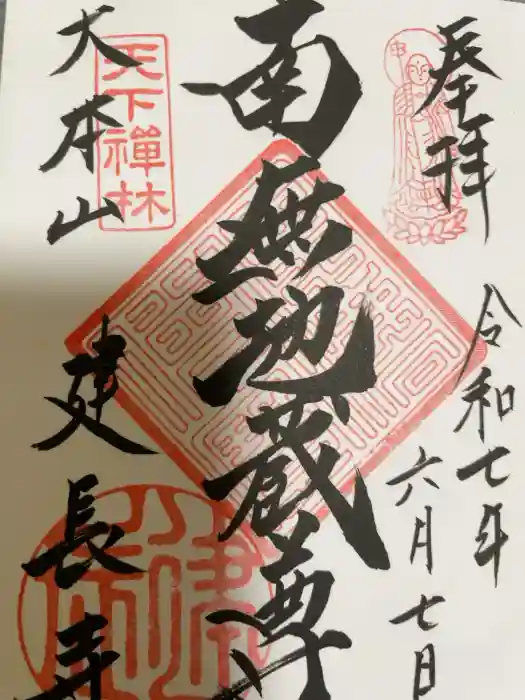 奉拝
令和七年
六月七日
南無地蔵尊
天下禅林
大本山
建長寺